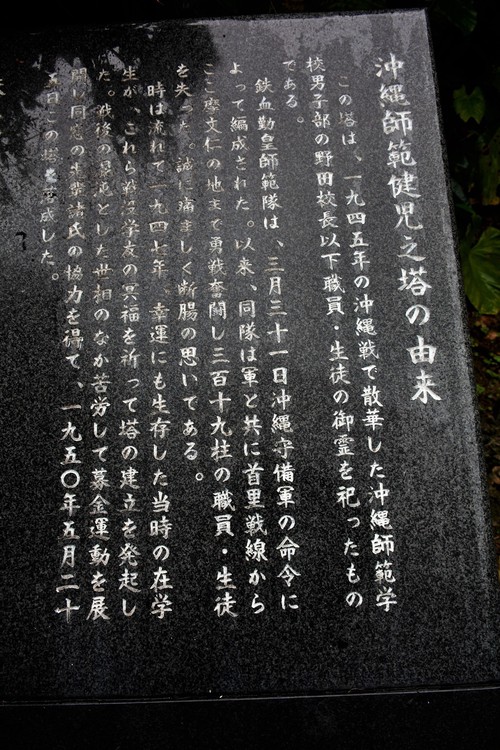 沖縄師範健児之塔の由来
この塔は、一九四五年の沖縄戦で散華した沖縄師範学
校男子部の野田校長以下職員・生徒の御霊を祀ったもの
である。
鉄血勤皇師範隊は、三月三十一日沖縄守備軍の命令に
よって編成された。以来、同隊は軍と共に首里戦線から
ここ摩文仁の地まで勇戦奮闘し三百十九柱の職員・生徒
を失った。誠に痛ましく断腸の思いである。
時は流れて一九四七年、幸運にも生存した当時の在学
生が、これら戦没学友の冥福を祈って塔の建立を発起し
た。戦後の混沌とした世相のなか苦労して募金運動を展
開し同窓の先輩諸氏の協力を得て、一九五〇年五月二十
五日この塔を落成した。